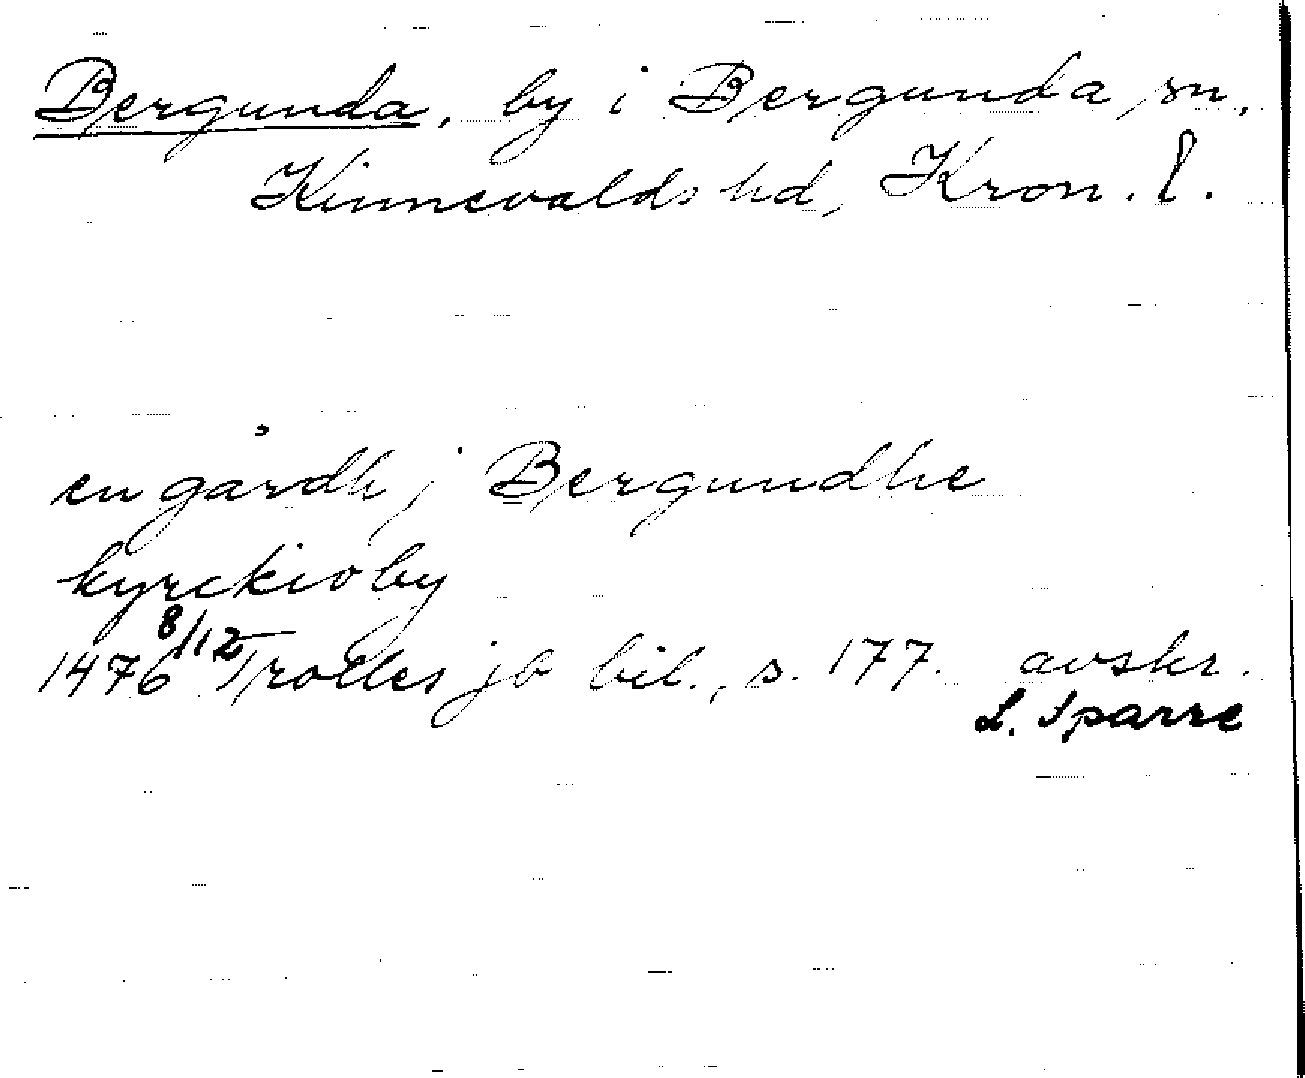 Bergunda, by i Bergunda sn,
Kinnevalds hd, Kron. l.
en gårdh j Bergundhe
kyrckioby
1476 8/12 Trolles jb bil., s. 177. avskr.
L. Sparre